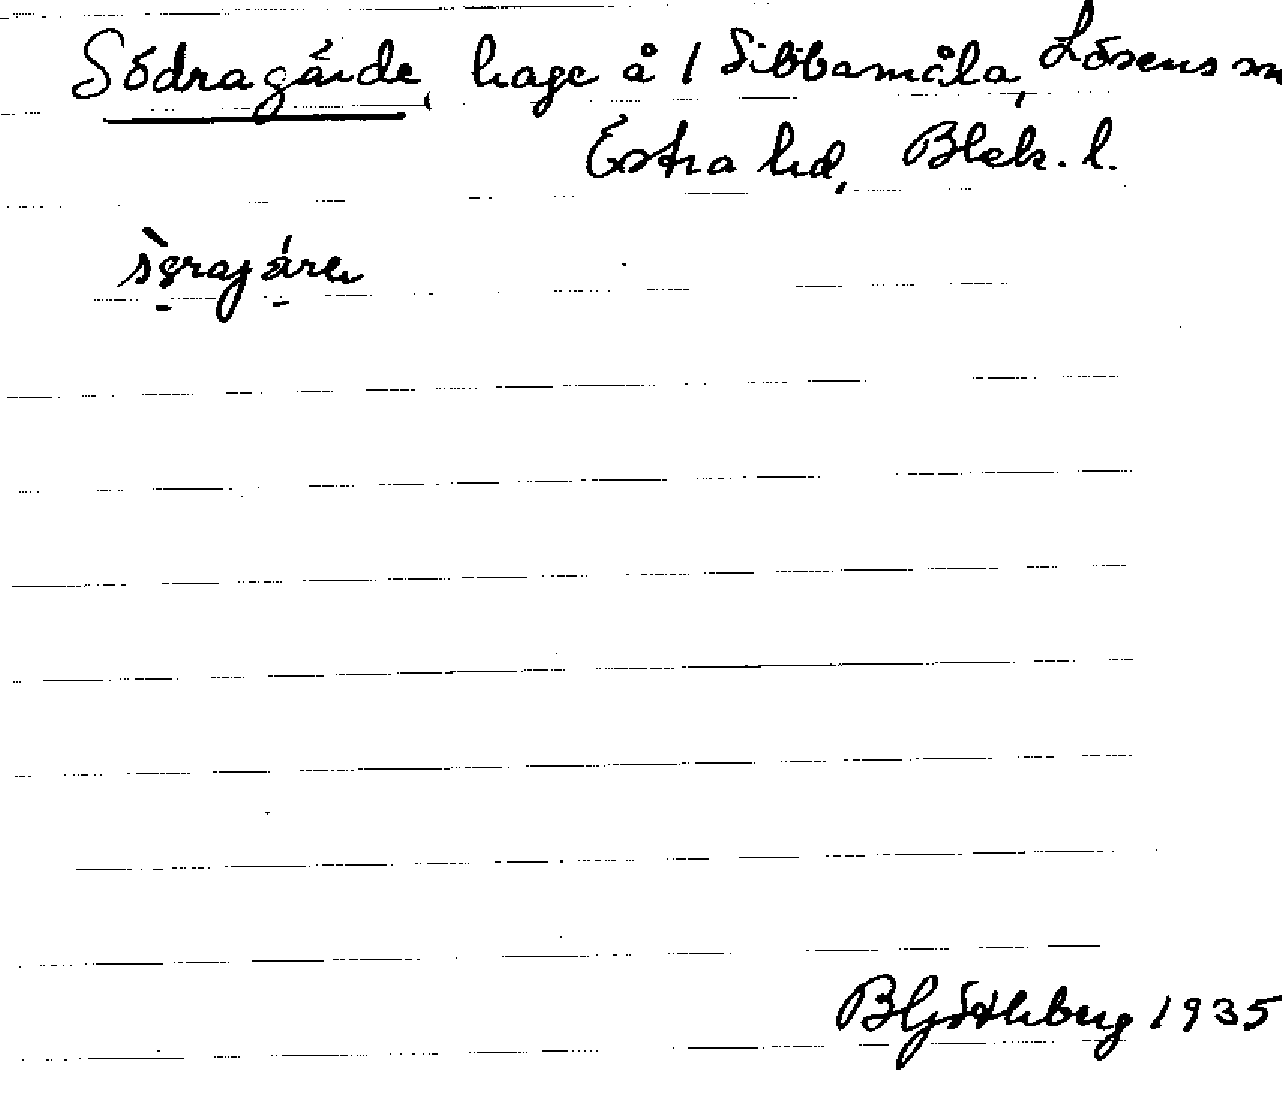 Södragärde, hage å 1 Sibbamåla, Lösens sn
Östra hd, Blek. l.
B Göthberg 1935